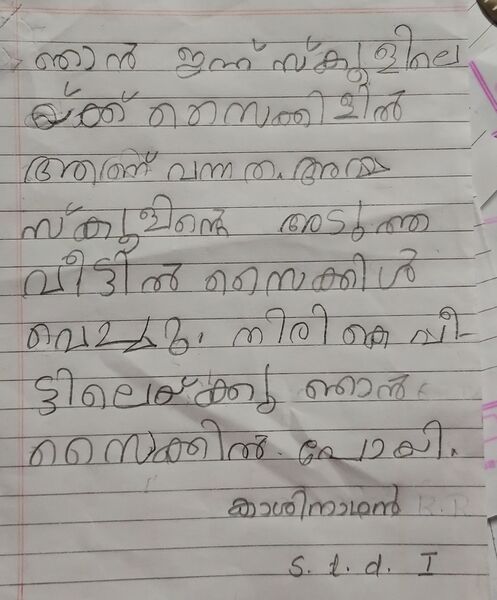 ഞാൻ ഇന്ന് സ്കൂളിലെ
യ്ക്ക് സൈക്കിളിൽ
ആണ് വന്നത. അമ്മ
സ്കൂളിന്റെ അടുത്ത
വീട്ടിൽ സൈക്കിൾ
വെച്ചു. തിരികെ വീ
ട്ടിലെയ്ക്കു ഞാൻ
സൈക്കിൽ. പോയി.
കാശിനാഥൻ R.R
s. t. d. I